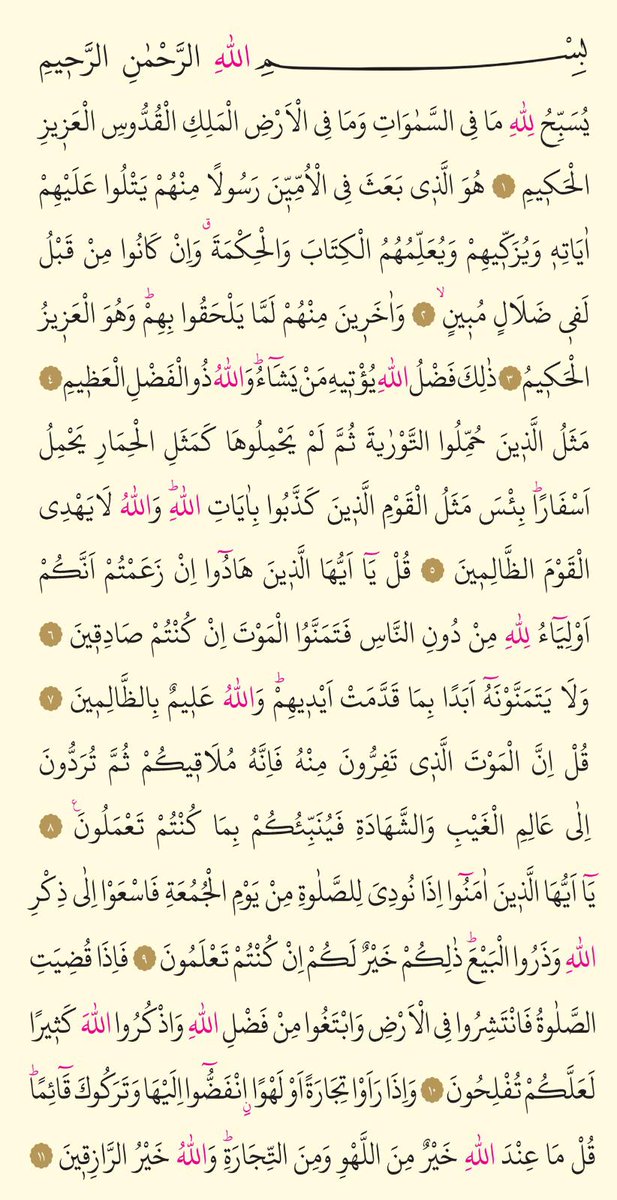 بِسْمِ اللهِ الرَّحْمٰنِ الرَّحٖيمِ
يُسَبِّحُ لِلّٰهِ مَا فِى السَّمٰوَاتِ وَمَا فِى الْاَرْضِ الْمَلِكِ الْقُدُّوسِ الْعَزٖيزِ
الْحَكٖيمِ ﴿١﴾ هُوَ الَّذٖى بَعَثَ فِى الْاُمِّيّٖنَ رَسُولًا مِنْهُمْ يَتْلُوا عَلَيْهِمْ
اٰيَاتِهٖ وَيُزَكّٖيهِمْ وَيُعَلِّمُهُمُ الْكِتَابَ وَالْحِكْمَةَۗ وَاِنْ كَانُوا مِنْ قَبْلُ
لَفٖى ضَلَالٍ مُبٖينٍۙ ﴿٢﴾ وَاٰخَرٖينَ مِنْهُمْ لَمَّا يَلْحَقُوا بِهِمْؕ وَهُوَ الْعَزٖيزُ
الْحَكٖيمُ ﴿٣﴾ ذٰلِكَ فَضْلُ اللهِ يُؤْتٖيهِ مَنْ يَشَٓاءُؕ وَاللهُ ذُو الْفَضْلِ الْعَظٖيمِ ﴿٤﴾
مَثَلُ الَّذٖينَ حُمِّلُوا التَّوْرٰيةَ ثُمَّ لَمْ يَحْمِلُوهَا كَمَثَلِ الْحِمَارِ يَحْمِلُ
اَسْفَارًاؕ بِئْسَ مَثَلُ الْقَوْمِ الَّذٖينَ كَذَّبُوا بِاٰيَاتِ اللهِؕ وَاللهُ لَا يَهْدِى
الْقَوْمَ الظَّالِمٖينَ ﴿٥﴾ قُلْ يَٓا اَيُّهَا الَّذٖينَ هَادُٓوا اِنْ زَعَمْتُمْ اَنَّكُمْ
اَوْلِيَٓاءُ لِلّٰهِ مِنْ دُونِ النَّاسِ فَتَمَنَّوُا الْمَوْتَ اِنْ كُنْتُمْ صَادِقٖينَ ﴿٦﴾
وَلَا يَتَمَنَّوْنَهُٓ اَبَدًا بِمَا قَدَّمَتْ اَيْدٖيهِمْؕ وَاللهُ عَلٖيمٌ بِالظَّالِمٖينَ ﴿٧﴾
قُلْ اِنَّ الْمَوْتَ الَّذٖى تَفِرُّونَ مِنْهُ فَاِنَّهُ مُلَاقٖيكُمْ ثُمَّ تُرَدُّونَ
اِلٰى عَالِمِ الْغَيْبِ وَالشَّهَادَةِ فَيُنَبِّئُكُمْ بِمَا كُنْتُمْ تَعْمَلُونَࣖ ﴿٨﴾
يَٓا اَيُّهَا الَّذٖينَ اٰمَنُٓوا اِذَا نُودِىَ لِلصَّلٰوةِ مِنْ يَوْمِ الْجُمُعَةِ فَاسْعَوْا اِلٰى ذِكْرِ
اللهِ وَذَرُوا الْبَيْعَؕ ذٰلِكُمْ خَيْرٌ لَكُمْ اِنْ كُنْتُمْ تَعْلَمُونَ ﴿٩﴾ فَاِذَا قُضِيَتِ
الصَّلٰوةُ فَانْتَشِرُوا فِى الْاَرْضِ وَابْتَغُوا مِنْ فَضْلِ اللهِ وَاذْكُرُوا اللهَ كَثٖيرًا
لَعَلَّكُمْ تُفْلِحُونَ ﴿١٠﴾ وَاِذَا رَاَوْا تِجَارَةً اَوْ لَهْوًاۨ انْفَضُّٓوا اِلَيْهَا وَتَرَكُوكَ قَٓائِمًاؕ
قُلْ مَا عِنْدَ اللهِ خَيْرٌ مِنَ اللَّهْوِ وَمِنَ التِّجَارَةِؕ وَاللهُ خَيْرُ الرَّازِقٖينَ ﴿١١﴾